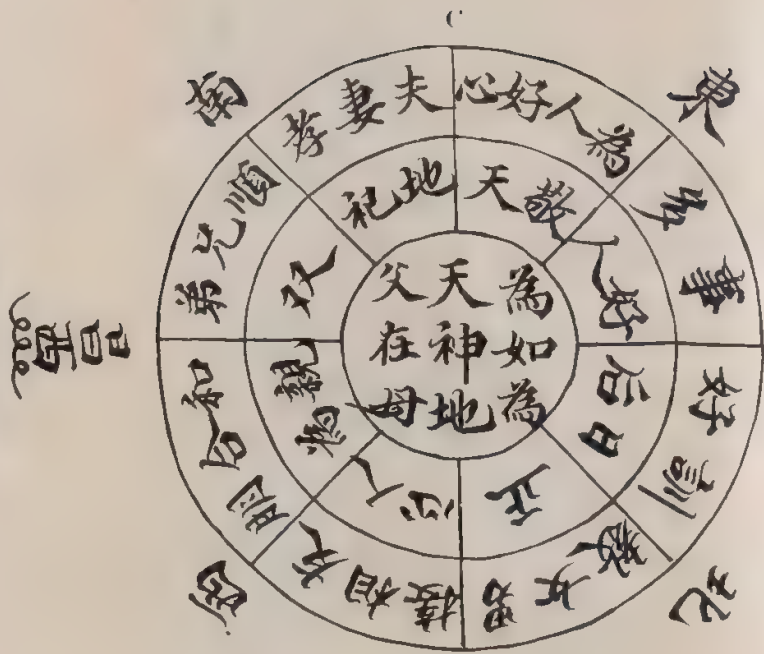 東
南
西
北
為人好心
夫妻孝
順兄弟
和合朋
友相接
男女教
訓好
事多
敬天
地祀
双
親為
人
正
后日
好人
為天父
如神在
為地母